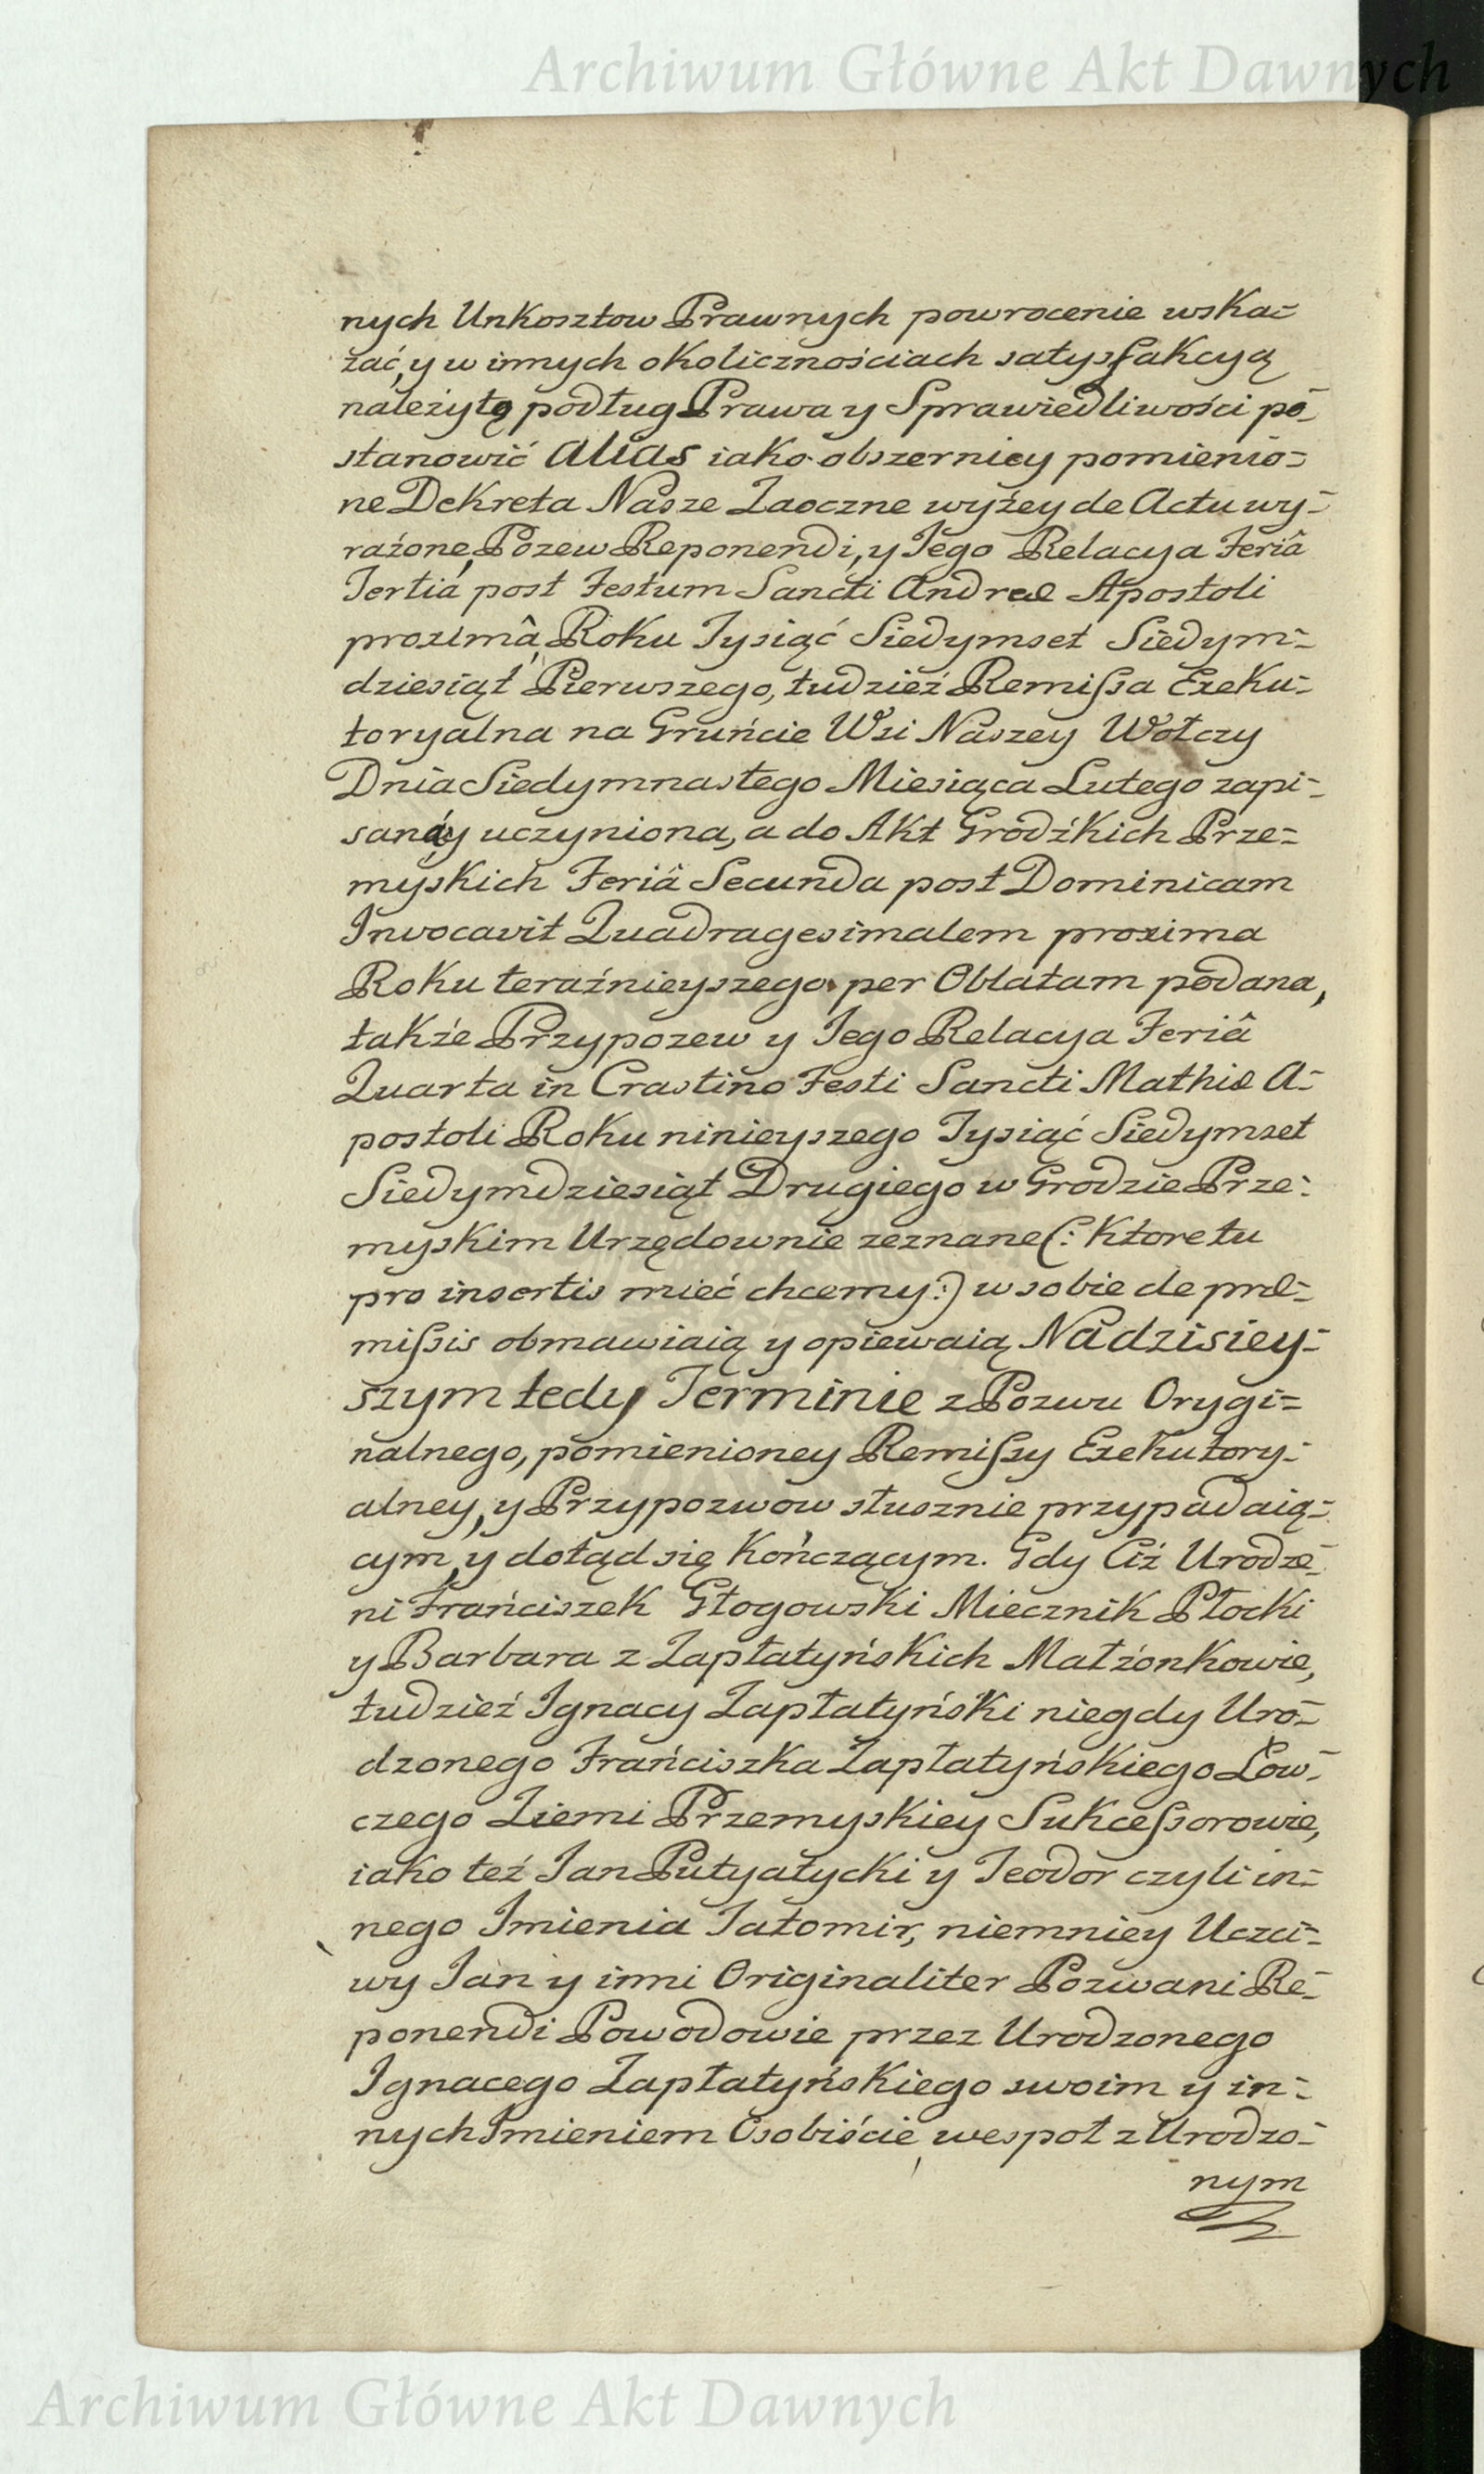 Archiwum Główne Akt Dawnych
nych Unkosztow Prawnych powrocenie wska=
zać, y w innych okolicznościach satysfakcyą
należytą podług Prawa y Sprawiedliwości po=
stanowić alias iako obszerniey pomienio=
ne Dekreta Nasze Zaoczne wyżey de Actu wy=
rażone, Pozew Reponendi, y Jego Relacya Feriâ
Tertia post Festum Sancti Andreæ Apostoli
proximâ, Roku Tysiąć Siedymset Siedym=
dziesiąt Pierwszego, tudzież Remissa Exeku=
toryalna na Gruńcie Wsi Naszey Wołczy
Dnia Siedymnastego Miesiąca Lutego zapi=
sana y uczyniona, a do Akt Grodzkich Prze=
myskich Feriâ Secunda post Dominicam
Invocavit Quadragesimalem proxima
Roku teraźnieyszego per Oblatam podana,
także Przypozew y Jego Relacya Feriâ
Quarta in Crastino Festi Sancti Mathiæ A=
postoli Roku ninieyszego Tysiąć Siedymset
Siedymdziesiąt Drugiego w Grodzie Prze=
myskim Urzędownie zeznane (: Ktore tu
pro insertis mieć chcemy :) w sobie de præ=
missis obmawiaią y opiewaią Na dzisiey=
szym tedy Terminie z Pozwu Orygi=
nalnego, pomienioney Remissy Exekutory=
alney, y Przypozwow słusznie przypadaią=
cym, y dotąd się kończącym. Gdy Ciż Urodze=
ni Frańciszek Głogowski Miecznik Płocki
y Barbara z Zapłatyńskich Małżonkowie,
tudzież Ignacy Zapłatyński niegdy Uro=
dzonego Frańciszka Zapłatyńskiego Łow=
czego Ziemi Przemyskiey Sukcessorowie,
iako też Jan Putyatycki y Teodor czyli in=
nego Imienia Jatomir, niemniey Uczci=
wy Jan y inni Originaliter Pozwani Re=
ponendi Powodowie przez Urodzonego
Ignacego Zapłatyńskiego swoim y in=
nych Imieniem Osobiście, wespoł z Urodzo=
nym
Archiwum Główne Akt Dawnych